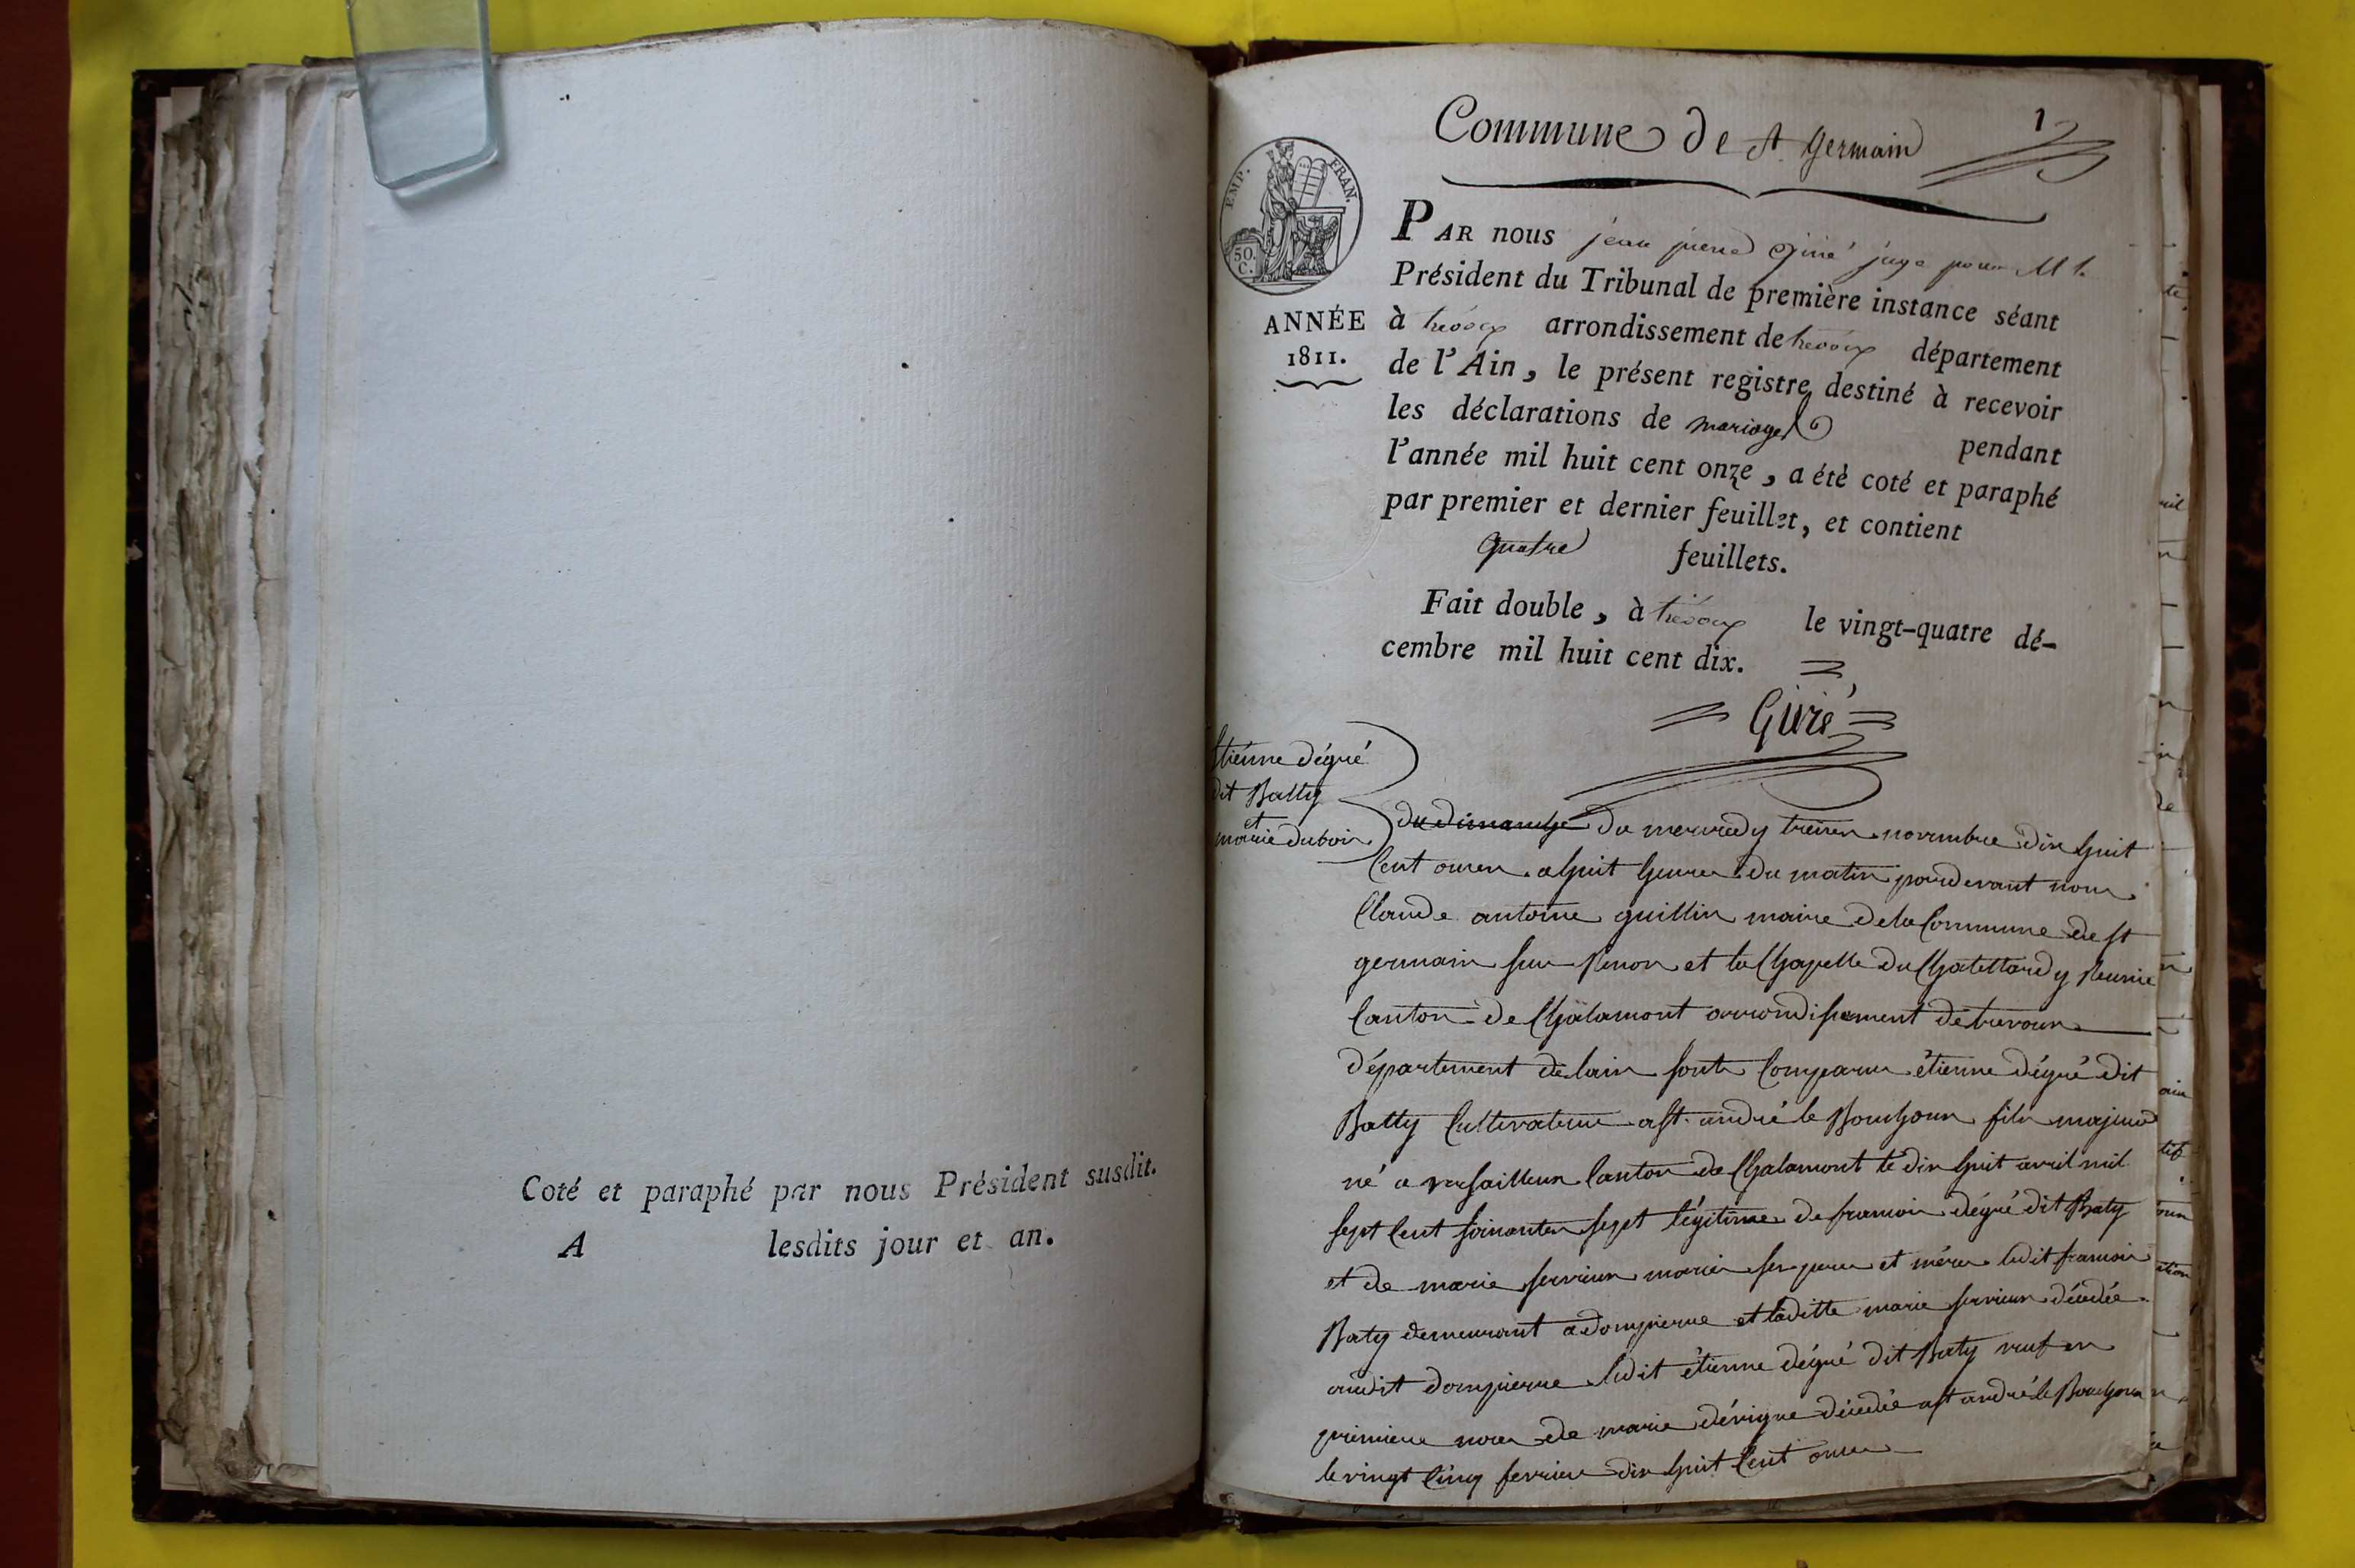 Coté et paraphé par nous Président susdit.
A lesdits jour et an.
Commune de St. Germain
1
EMP. FRAN.
50.
C.
ANNÉE
1811.
PAR nous jean pierre Giriè juge pour Mr le
Président du Tribunal de première instance séant
à trévoux arrondissement de trévoux département
de l'Ain, le présent registre destiné à recevoir
les déclarations de mariages pendant
l'année mil huit cent onze, a été coté et paraphé
par premier et dernier feuillet, et contient
quatre feuillets.
Fait double, à trévoux le vingt-quatre dé-
cembre mil huit cent dix.
Girié
Etiénne dégué
dit Batty
et
marie dubois
du dimanche du mercredy treize novembre dix huit
Cent onze a huit heures du matin pardevant nous
Claude antoine guillin maire de la Commune de st
germain sur Renon et la Chapelle du Chatellard y Reunie
Canton de Chälamont arrondissement de trevoux
département de lain sonts Comparus étienne dégué dit
Batty Cultivateur a st. andré le Bouchoux fils majeur
né a versailleux Canton de Chalamont le dix huit avril mil
sept Cent soixantes sept légitime de francois dégué dit Baty
et de marie servieux mariés ses peres et méres ledit francois
Baty demeurant a dompierre et laditte marie servieux décédée
audit dompierre ledit étienne dégué dit Baty veuf en
premiere noces de marie dévigne décédée a st andré le Bouchoux
le vingt Cinq fevrier dix huit Cent onze